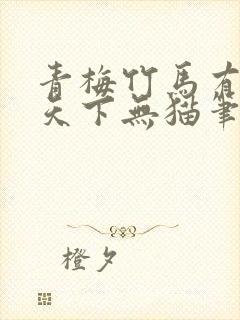 青梅竹馬有
天下無貓筆
橙夕